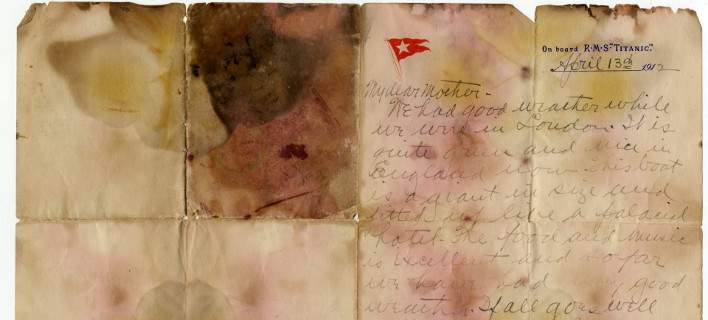 On board R·M·S "TITANIC."
April 13th 1912
My dear Mother -
We had good weather while
we were in London. It is
quite green and nice in
England now. This boat
is a giant in size and
fitted up like a palacial
hotel. The food and music
is excellent and so far
we have had very good
weather. If all goes well